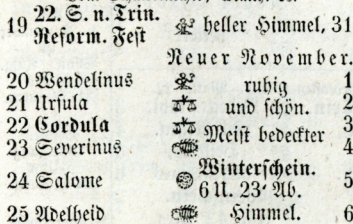 19 22. S. n. Trin. heller Himmel, 31
Reform. Fest
Neuer November.
20 Wendelinus ruhig 1
21 Ursula und schön. 2
22 Cordula Meist bedeckter 3
23 Severinus 4
24 Salome Winterschein. 5
6 U. 23' Ab.
25 Adelheid Himmel. 6